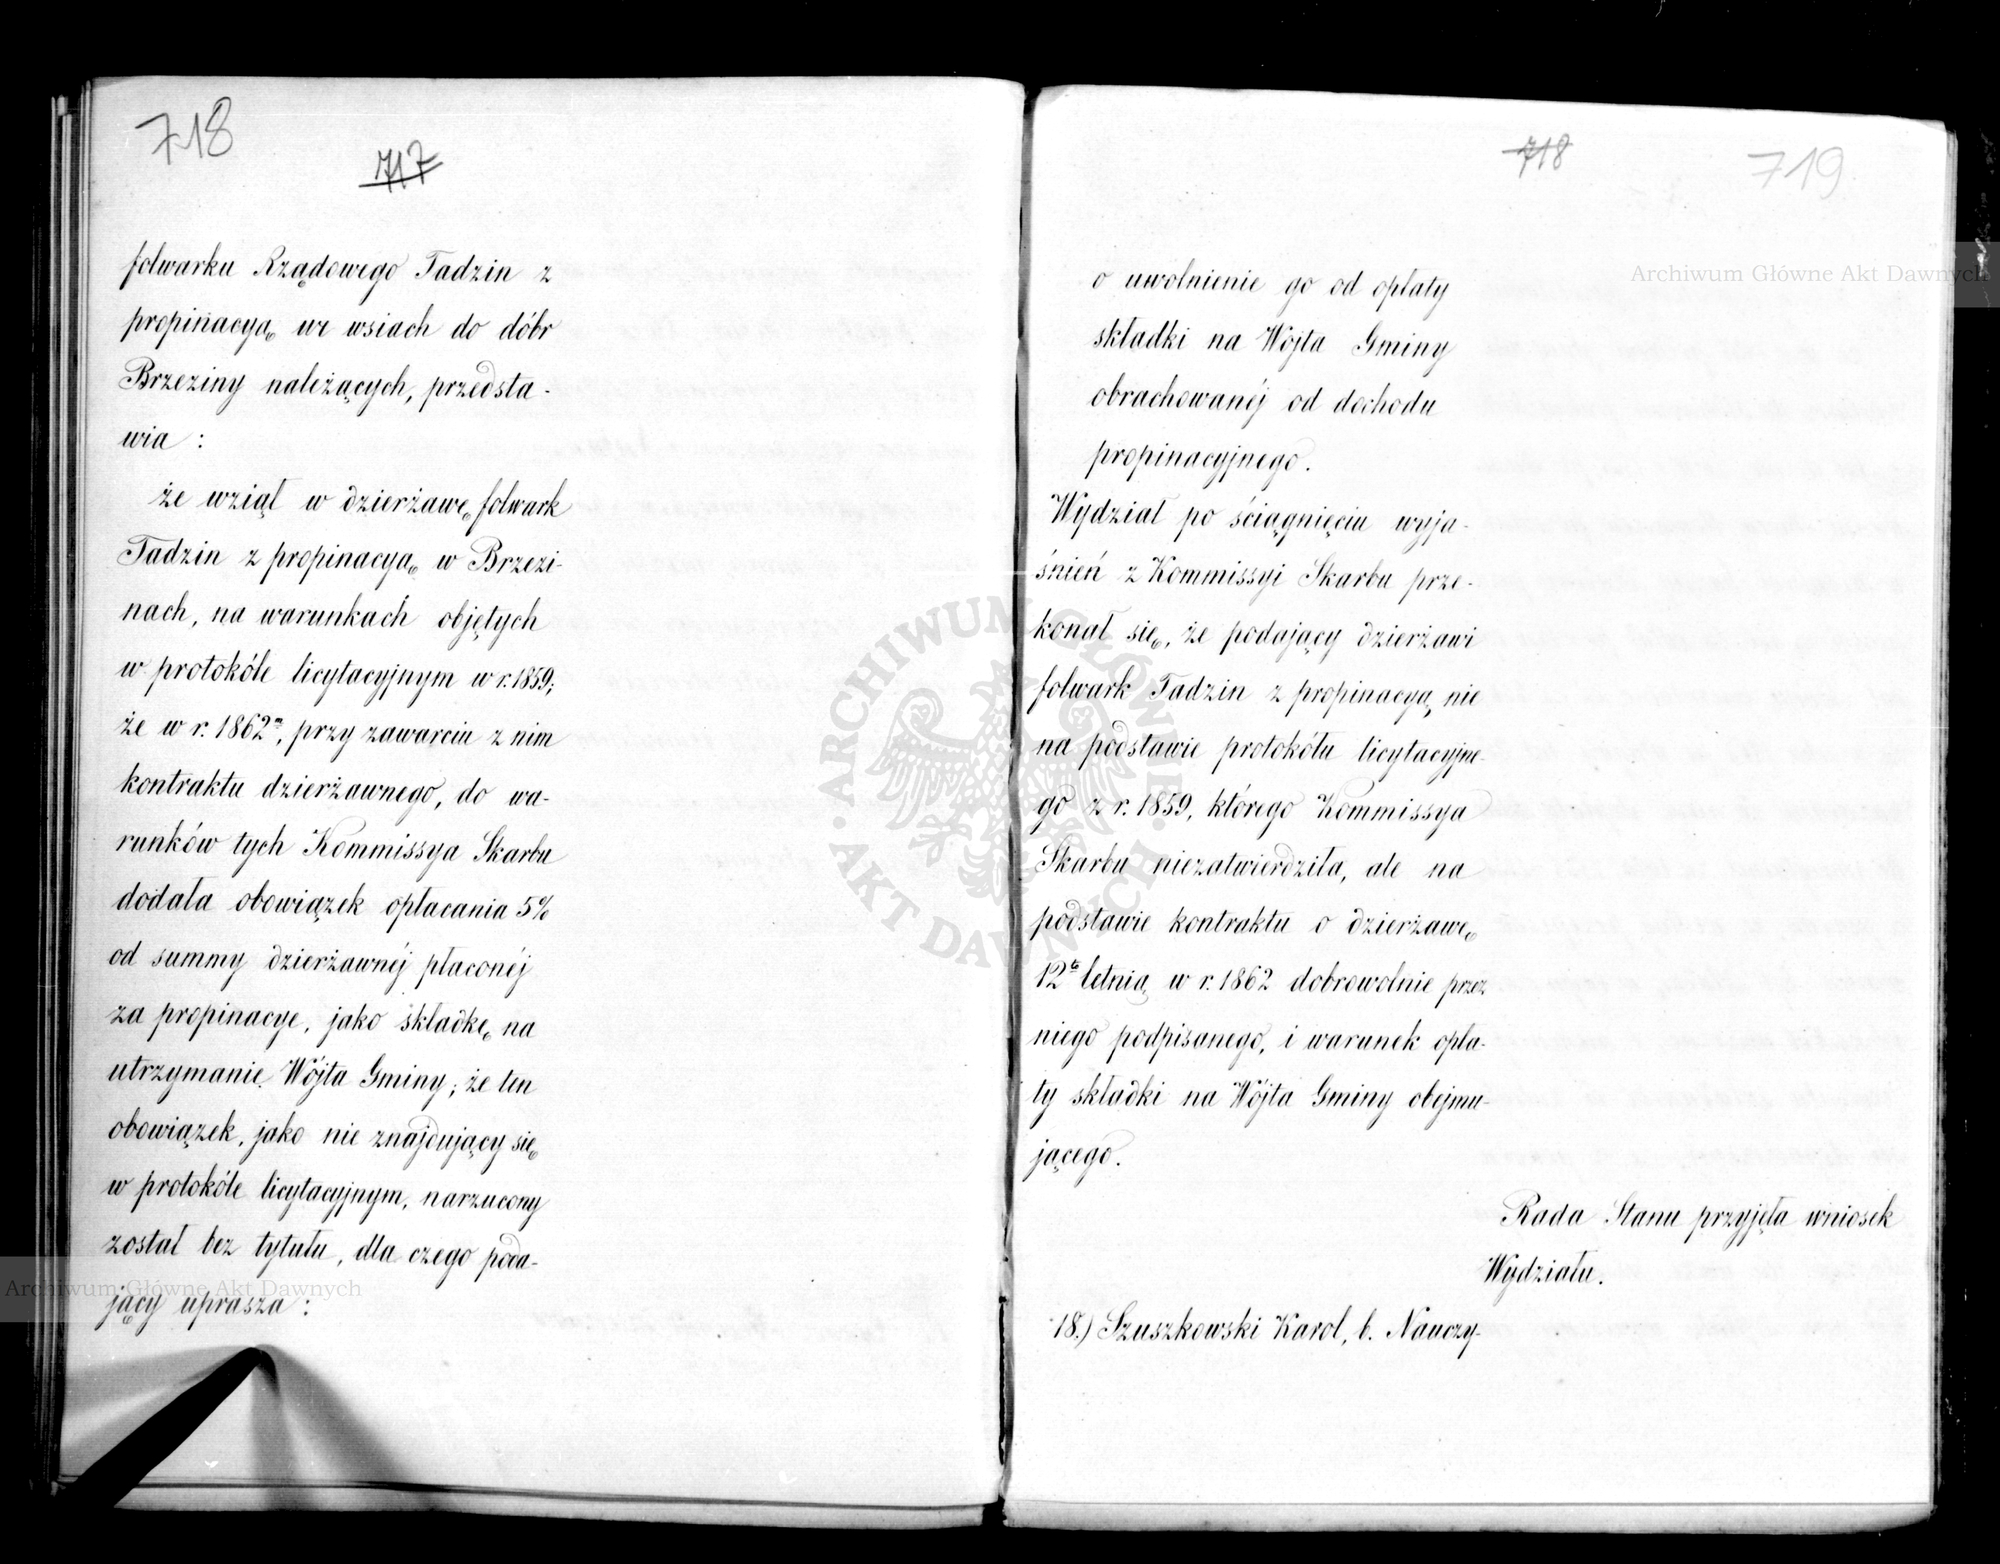 718
717
folwarku Rządowego Tadzin z
propinacyą we wsiach do dóbr
Brzeziny należących, przedsta-
wia :
że wziął w dzierżawę folwark
Tadzin z propinacyą w Brzezi-
nach, na warunkach objętych
w protokóle licytacyjnym w r. 1859;
że w r. 1862m, przy zawarciu z nim
kontraktu dzierżawnego, do wa-
runków tych Kommissya Skarbu
dodała obowiązek opłacania 5%
od summy dzierżawnéj płaconéj
za propinacye, jako składkę na
utrzymanie Wójta Gminy; że ten
obowiązek, jako nie znajdujący się
w protokóle licytacyjnym, narzucony
został bez tytułu, dla czego poda-
jący uprasza :
718
719
o uwolnienie go od opłaty
składki na Wójta Gminy
obrachowanéj od dochodu
propinacyjnego.
Wydział po ściągnięciu wyja-
śnień z Kommissyi Skarbu prze-
konał się, że podający dzierżawi
folwark Tadzin z propinacyą, nie
na podstawie protokółu licytacyjne-
go z r. 1859, którego Kommissya
Skarbu niezatwierdziła, ale na
podstawie kontraktu o dzierżawę
12to letnią w r. 1862 dobrowolnie przez
niego podpisanego, i warunek opła-
ty składki na Wójta Gminy obejmu-
jącego.
Rada Stanu przyjęła wniosek
Wydziału.
18.) Szuszkowski Karol, b. Nauczy-
Archiwum Główne Akt Dawnych
Archiwum Główne Akt Dawnych
ARCHIWUM GŁÓWNE AKT DAWNYCH